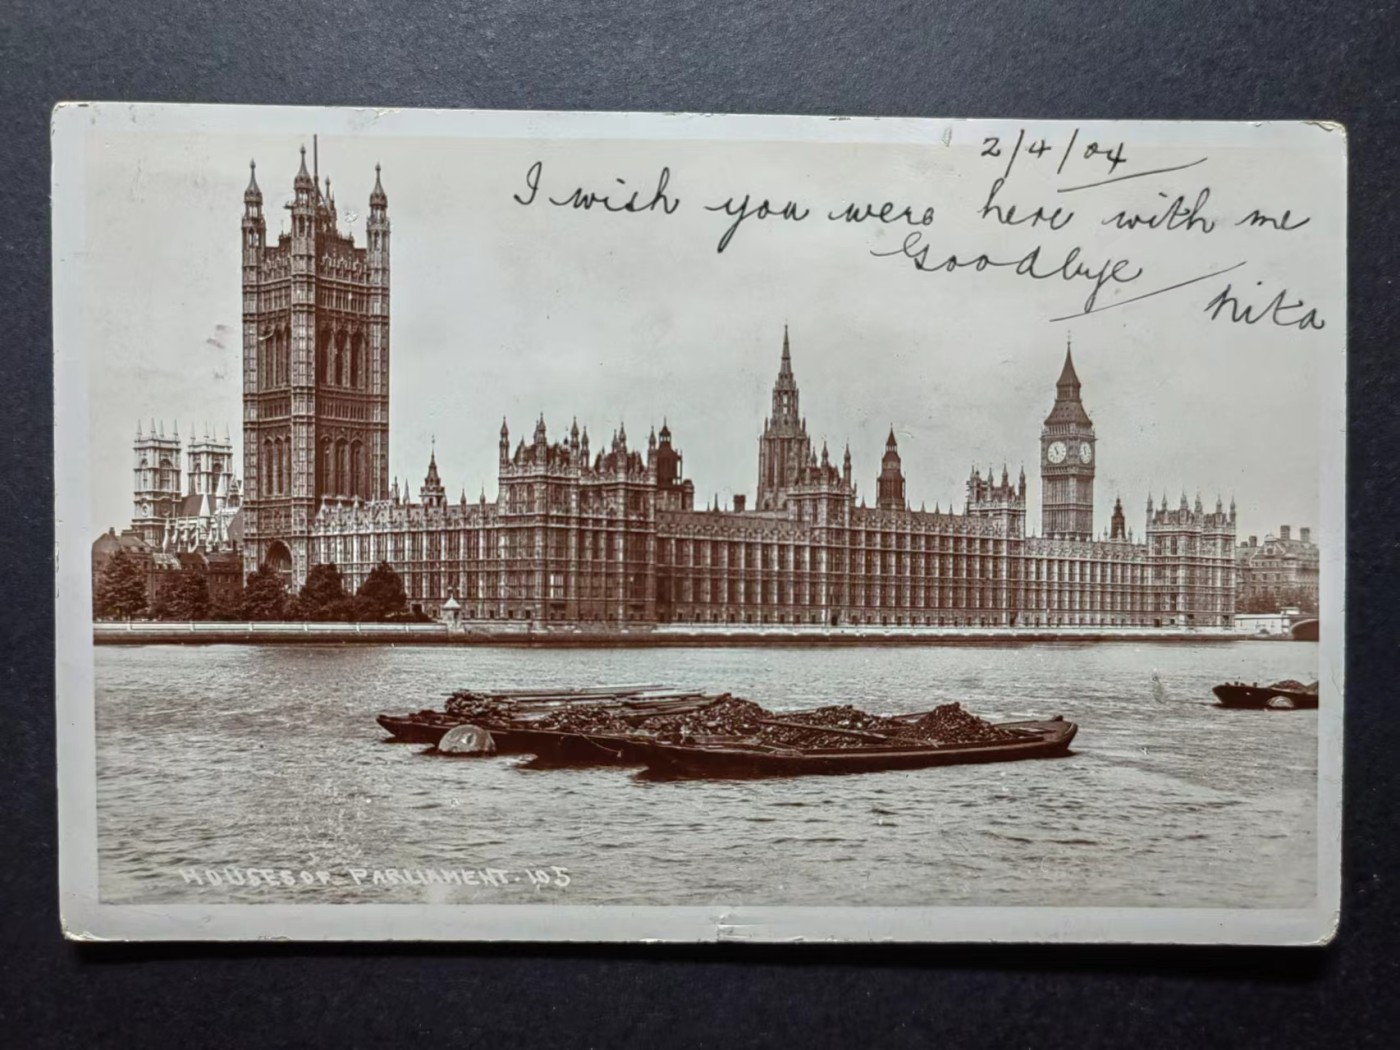 2/4/04
I wish you were here with me
Goodbye
Nita
HOUSES OF PARLIAMENT. 105